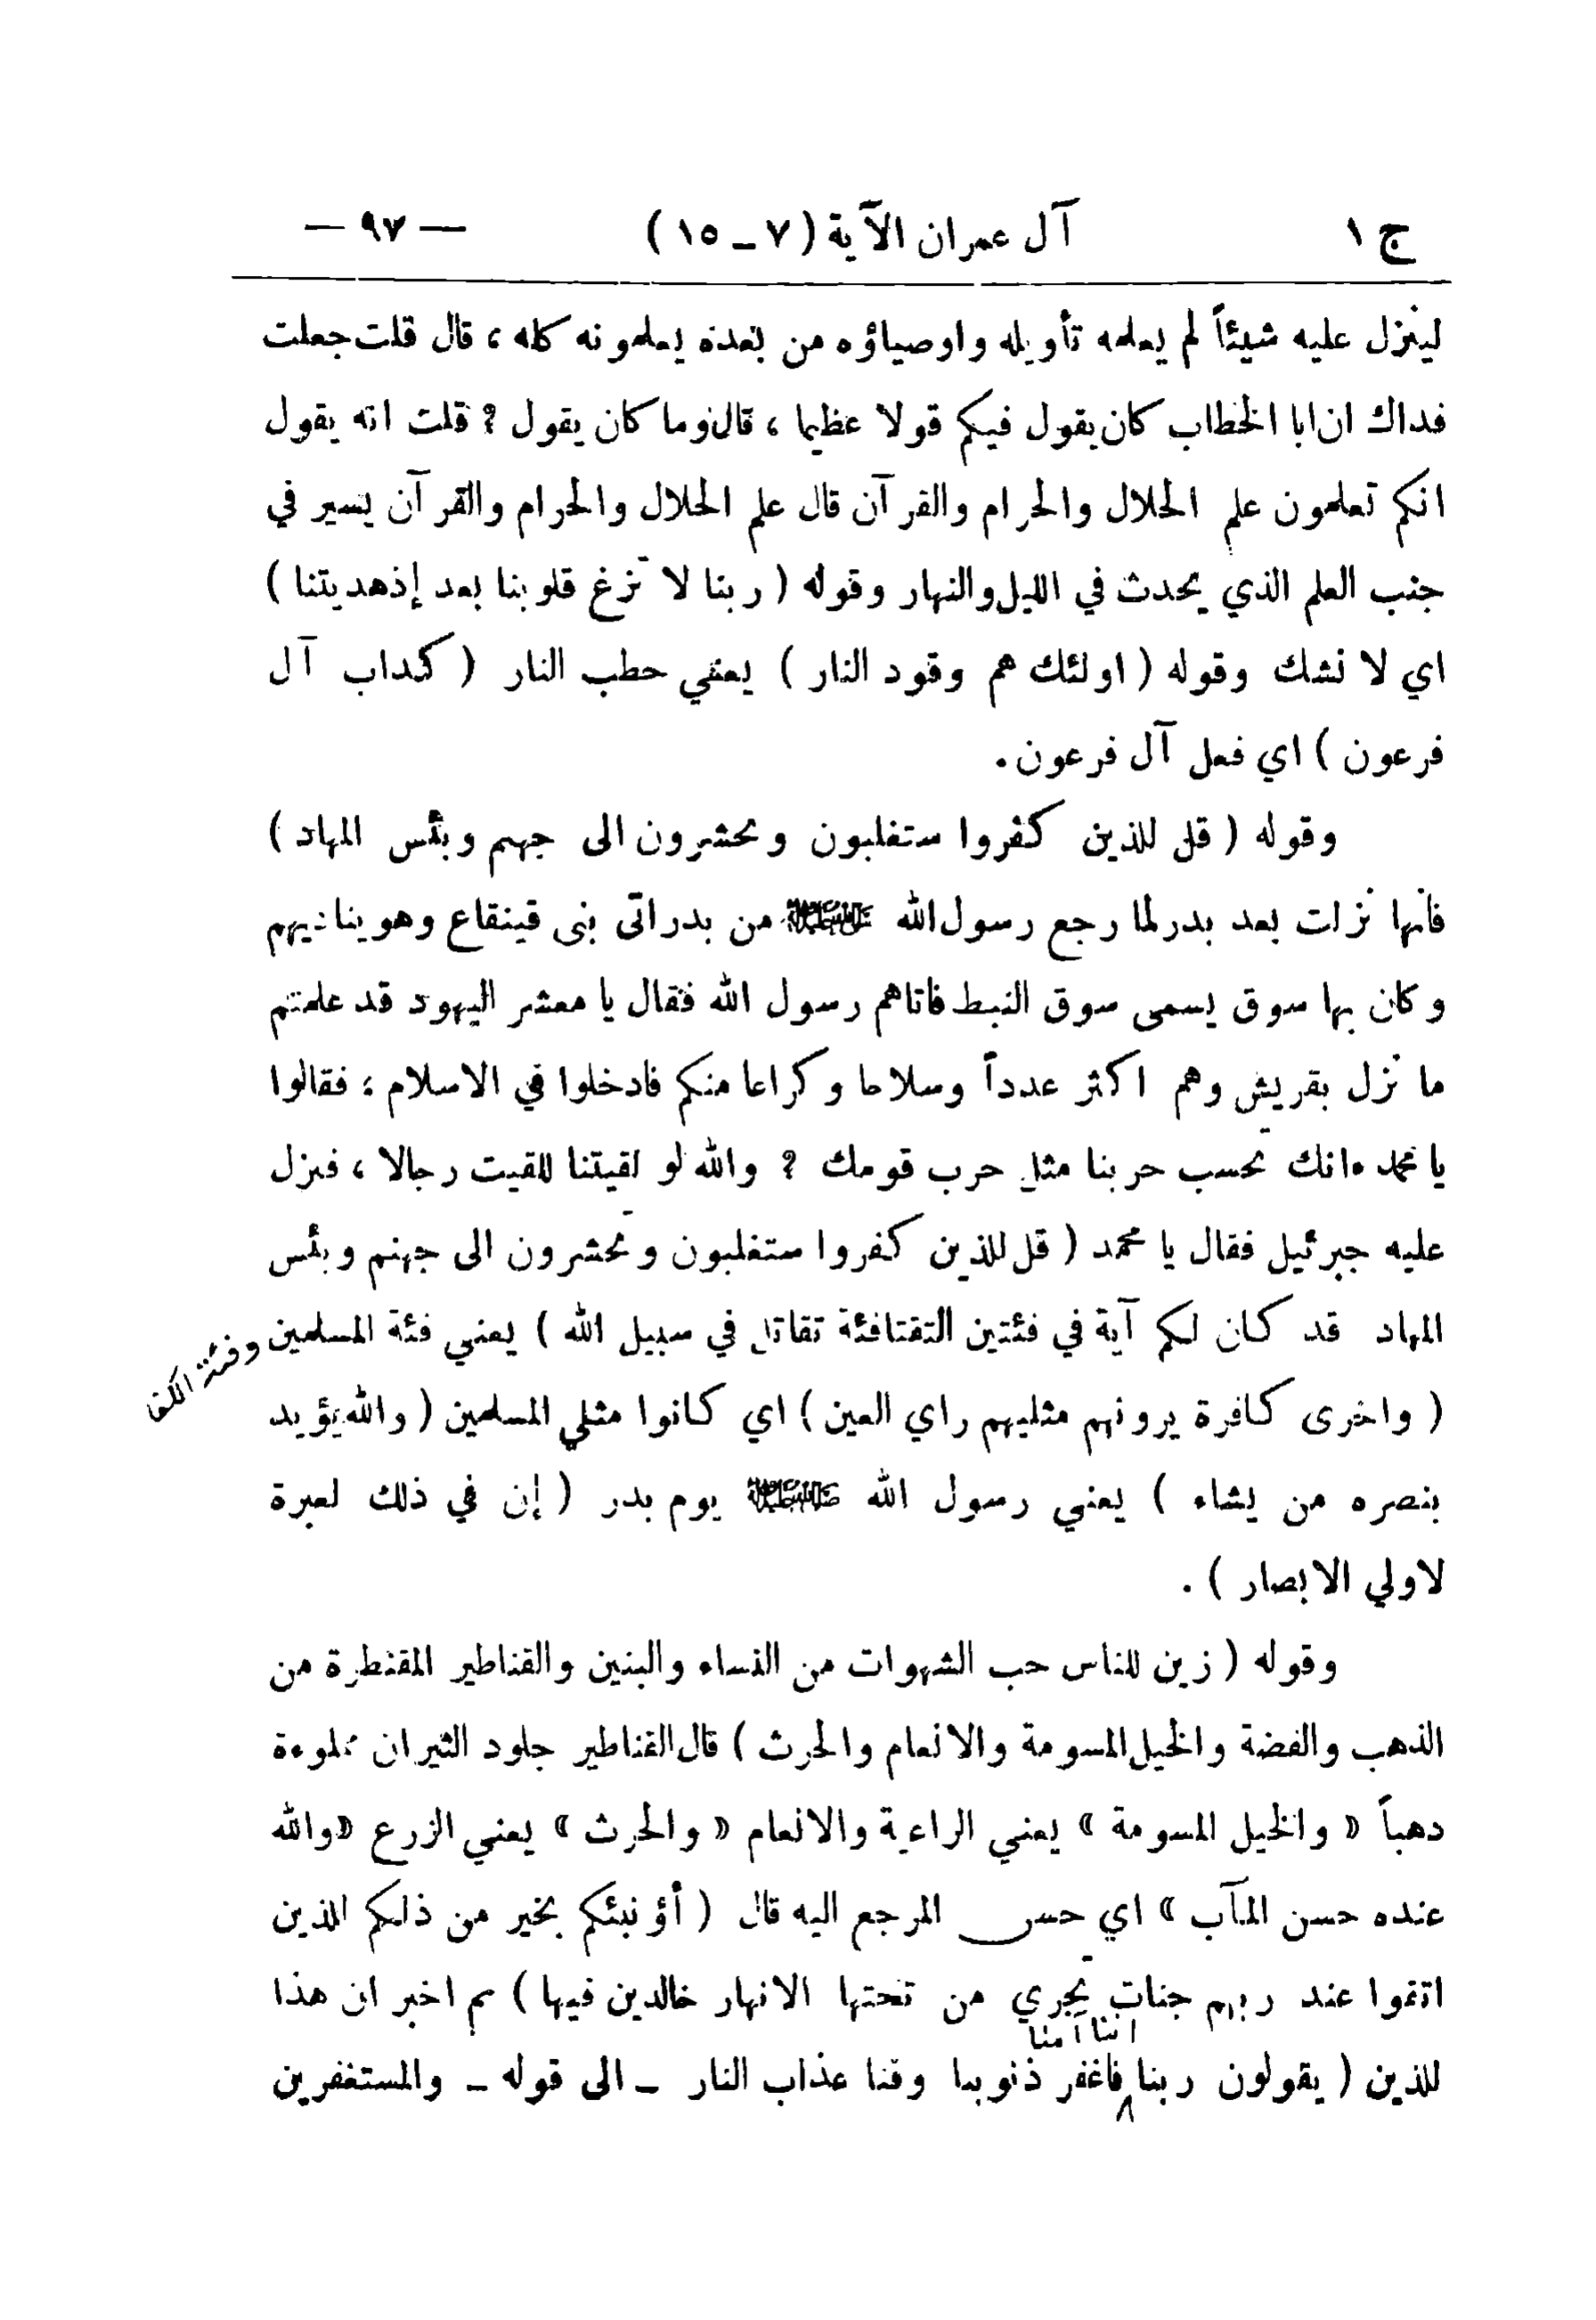 ج ١ آل عمران الآية ( ٧ ـ ١٥ ) — ٩٧ —
لينزل عليه شيئاً لم يعلمه تأويله واوصياؤه من بعده يعلمونه كله ، قال قلت جعلت
فداك ان ابا الخطاب كان يقول فيكم قولا عظيما ، قال وما كان يقول ؟ قلت انه يقول
انكم تعلمون علم الحلال والحرام والقرآن قال علم الحلال والحرام والقرآن يسير في
جنب العلم الذي يحدث في الليل والنهار وقوله ( ربنا لا تزغ قلوبنا بعد إذ هديتنا )
اي لا نشك وقوله ( اولئك هم وقود النار ) يعني حطب النار ( كداب آل
فرعون ) اي فعل آل فرعون .
وقوله ( قل للذين كفروا ستغلبون وتحشرون الى جهنم وبئس المهاد )
فانها نزلت بعد بدر لما رجع رسول الله ﷺ من بدر اتى بنى قينقاع وهو يناديهم
وكان بها سوق يسمى سوق النبط فاتاهم رسول الله فقال يا معشر اليهود قد علمتم
ما نزل بقريش وهم اكثر عدداً وسلاحا وكراعا منكم فادخلوا في الاسلام ؛ فقالوا
يا محمد ءانك تحسب حربنا مثل حرب قومك ؟ والله لو لقيتنا للقيت رجالا ، فنزل
عليه جبرئيل فقال يا محمد ( قل للذين كفروا ستغلبون وتحشرون الى جهنم وبئس
المهاد قد كان لكم آية في فئتين التقتا فئة تقاتل في سبيل الله ) يعني فئة المسلمين وفئة الكفا
( واخرى كافرة يرونهم مثليهم راي العين ) اي كانوا مثلي المسلمين ( والله يؤيد
بنصره من يشاء ) يعني رسول الله ﷺ يوم بدر ( إن في ذلك لعبرة
لاولي الابصار ) .
وقوله ( زين للناس حب الشهوات من النساء والبنين والقناطير المقنطرة من
الذهب والفضة والخيل المسومة والانعام والحرث ) قال القناطير جلود الثيران مملوءة
دهباً « والخيل المسومة » يعني الراعية والانعام « والحرث » يعني الزرع « والله
عنده حسن المآب » اي حسن المرجع اليه قال ( أؤنبئكم بخير من ذلكم للذين
اتقوا عند ربهم جنات تجري من تحتها الانهار خالدين فيها ) ثم اخبر ان هذا
اننا آمنا
للذين ( يقولون ربنا فاغفر ذنوبنا وقنا عذاب النار ـ الى قوله ـ والمستغفرين